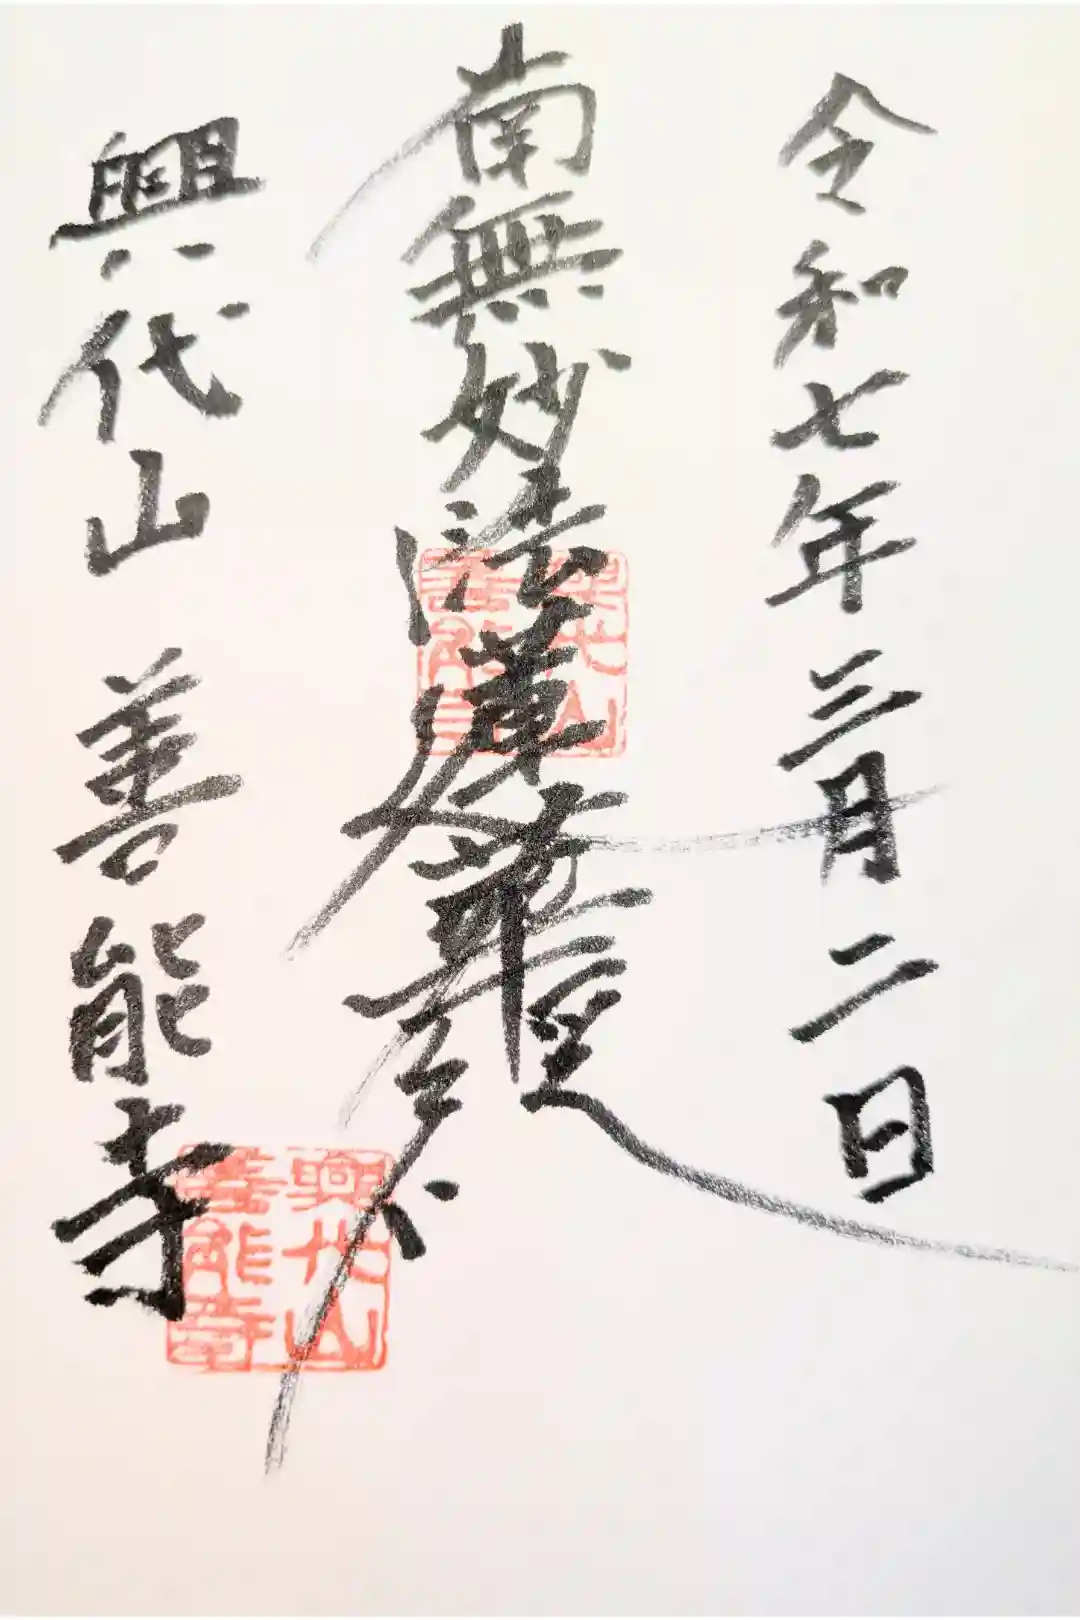 令和七年三月二日
南無妙法蓮華経
興代山 善能寺
興代山
善能寺
興代山
善能寺